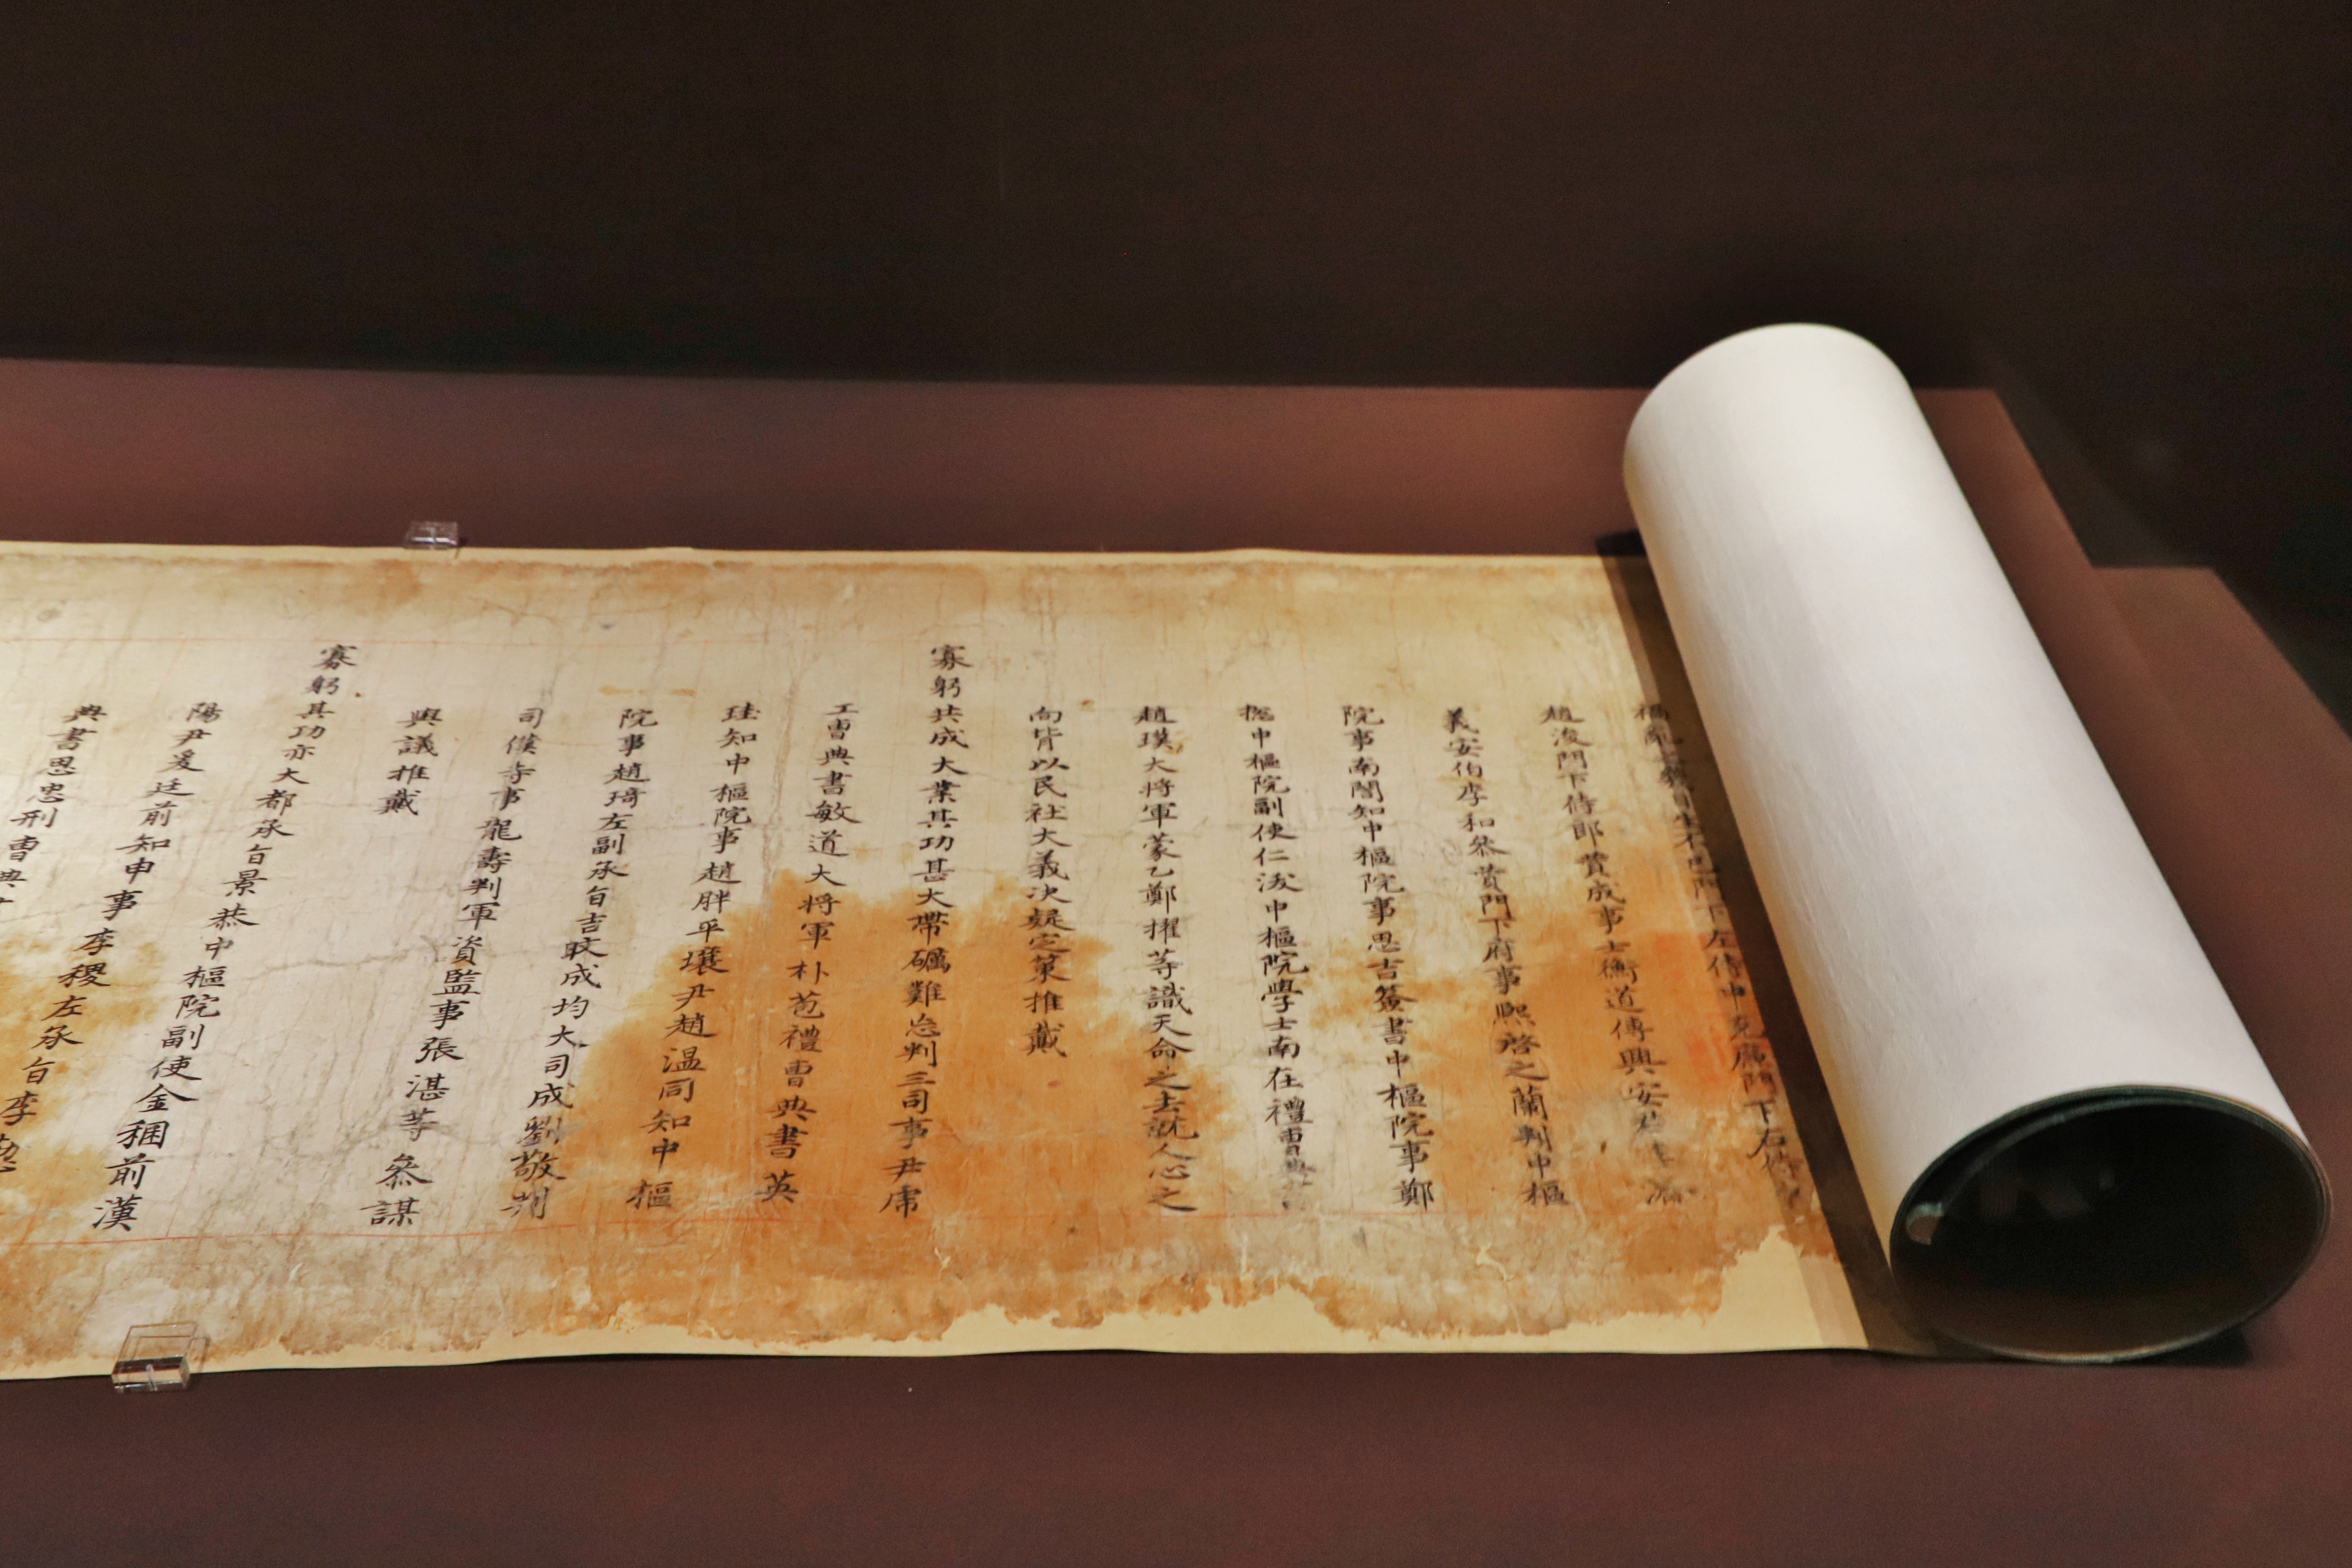 門下左侍中克廉門下右
趙浚門下侍郎贊成事士衡道傳興安君李濟
義安伯李和叅贊門下府事熙啓之蘭判中樞
院事南誾知中樞院事思吉簽書中樞院事鄭
摠中樞院副使仁沃中樞院學士南在禮曹典書
趙璞大將軍蒙乙鄭擢等識天命之去就人心之
向背以民社大義決疑定策推戴
寡躬共成大業其功甚大帶礪難忘判三司事尹虎
工曹典書敏道大將軍朴苞禮曹典書英
珪知中樞院事趙胖平壤尹趙温同知中樞
院事趙琦左副承旨吉旼成均大司成劉敬判
司僕寺事龍壽判軍資監事張湛等叅謀
與議推戴
寡躬其功亦大都承旨景恭中樞院副使金稛前漢
陽尹爰廷前知申事李稷左承旨李懃
典書思忠刑曹典